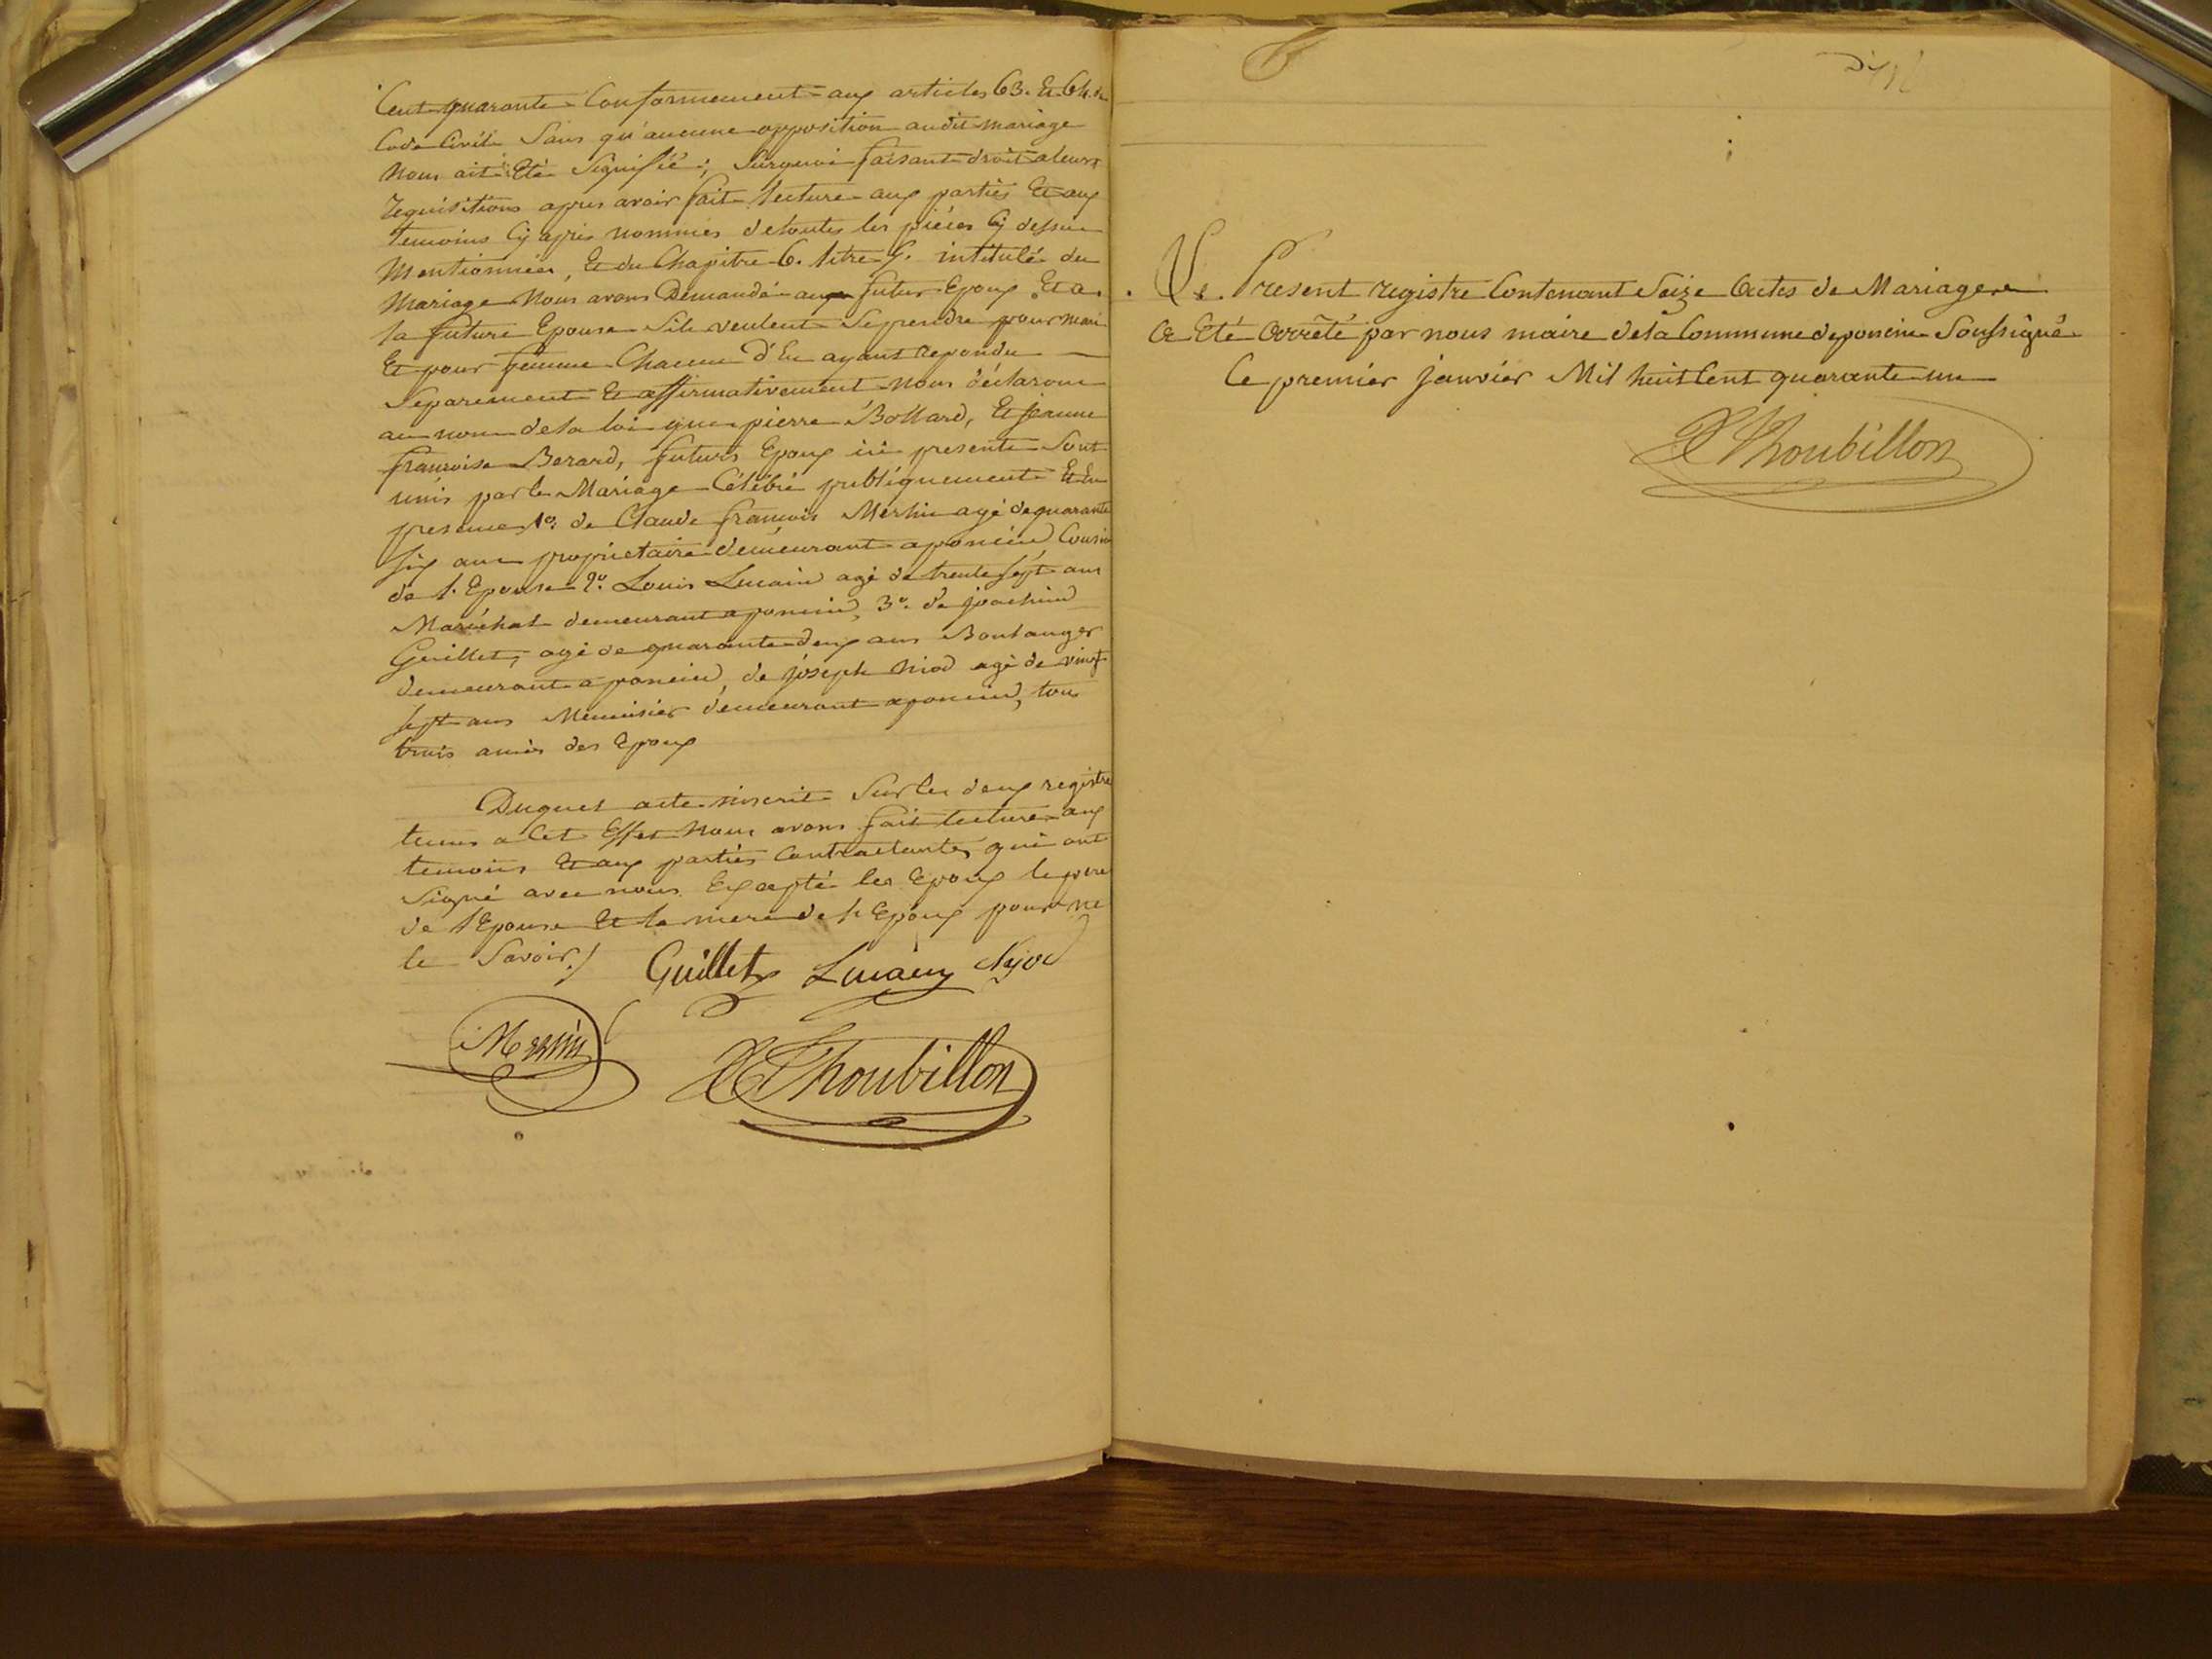 Cent quarante Conformement aux articles 63. Et 64. du
Code Civil Sans qu'aucune opposition audit mariage
Nous ait Eté Signifiée; Surquoi faisant droit aleurs
requisitions apres avoir fait lecture aux parties Et aux
temoins Cy après nommés detoutes les pièces Cy dessus
Mentionnées, Et du Chapitre 6. titre 5. intitulé du
Mariage Nous avons Demandé aux futur Epoux Et a
la future Epouse Sils veulent Seprendre pour mari
Et pour femme Chacun d'Eu ayant repondu
Separement Et affirmativement Nous déclarons
au nom dela loi que pierre Bollard, Et jeanne
françoise Berard, futurs Epoux ici presents Sont
unis par le Mariage Célébré publiquement Et En
presence 1º. de Claude francois Merlin agé dequarante
six ans propriétaire demeurant aponcin Cousin
de l'Epouse 2º. Louis Lucain agé de trente sept ans
Maréchal demeurant aponcin, 3º. de joachim
Guillet, agé de quarante deux ans Boulanger
demeurant a poncin, de joseph Niod agé de vingt
sept ans Menuisier demeurant aponcin, tous
trois amis des Epoux
Duquel acte inscrit Sur les deux registre
tenus a Cet Effet Nous avons fait lecture aux
temoins Et aux parties Contractantes qui ont
Signé avec nous Excepté les Epoux le pere
de l'Epouse Et la mere de l'Epoux pour ne
le Savoir./ Guillet Nyod
D Thoubillon
Le Present registre Contenant Seize Actes de Mariages
a Eté Arrêté par nous maire dela Commune deponcin Soussigné
le premier janvier Mil huit Cent quarante un
D Thoubillon